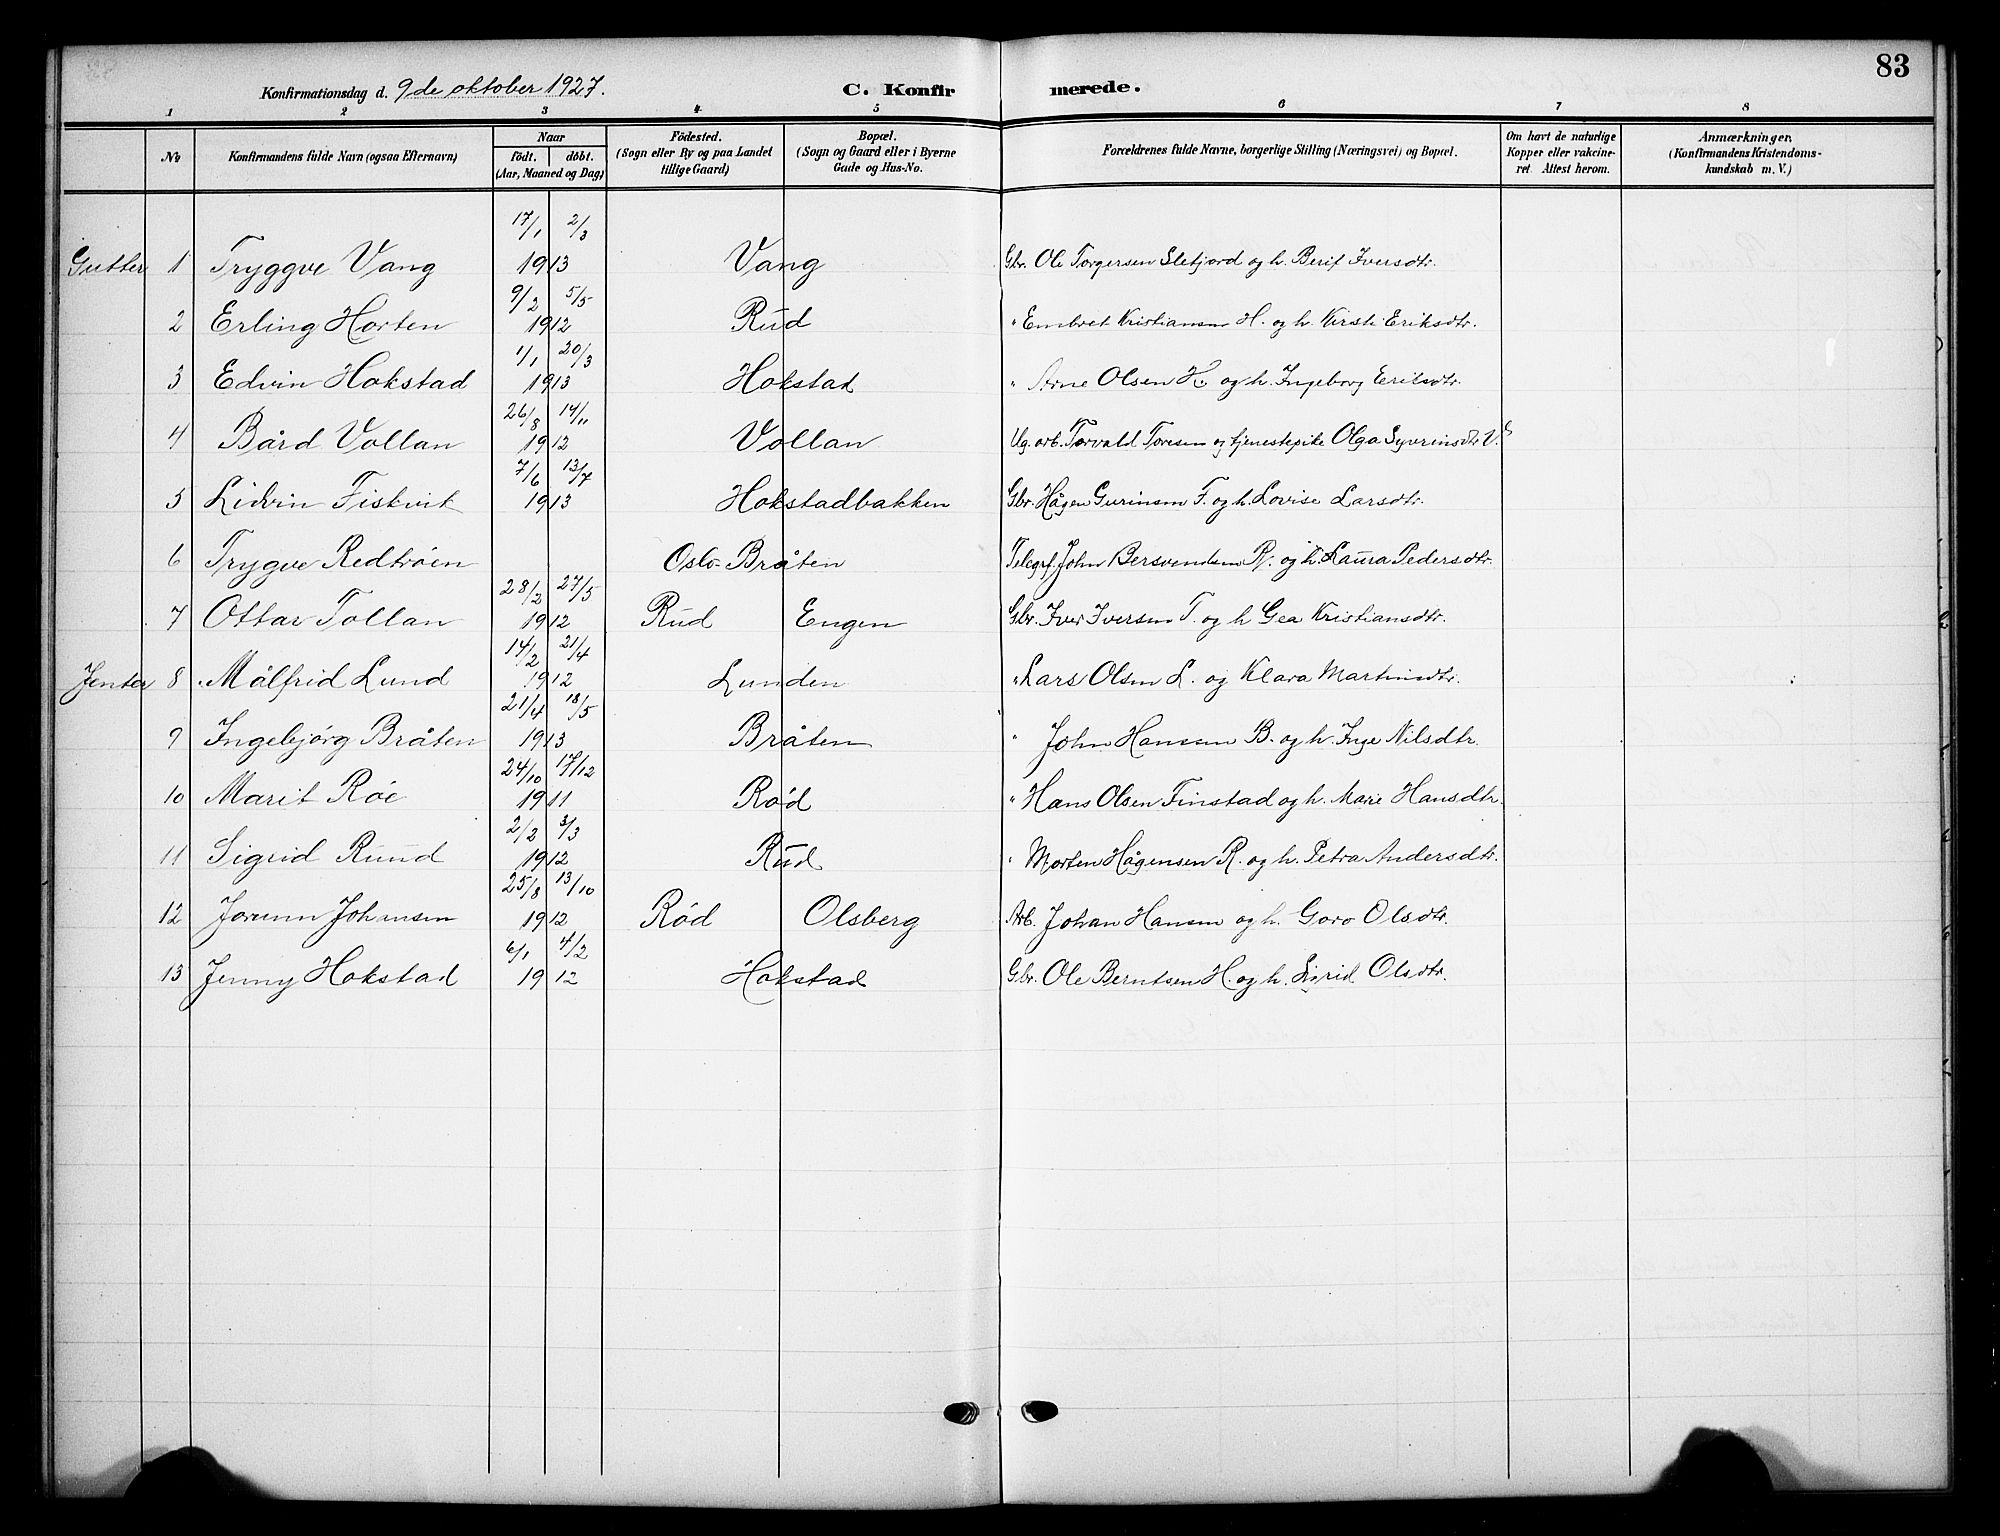 83
Konfirmationsdag d. 9de oktober 1927. C. Konfirmerede.
1 2 3 4 5 6 7 8
No Konfirmandens fulde Navn (ogsaa Efternavn) Naar födt. döbt. (Aar, Maaned og Dag) Födested. (Sogn eller By og paa Landet tillige Gaard) Bopæl. (Sogn og Gaard eller i Byerne Gade og Hus-No. Forældrenes fulde Navne, borgerlige Stilling (Næringsvei) og Bopæl. Om havt de naturlige Kopper eller vakcineret Attest herom. Anmærkninger, (Konfirmandens Kristendomskundskab m. V.)
17/1 2/3
Gutter 1 Tryggve Vang 1913 Vang Gbr. Ole Torgersen Sletjord og h. Berit Iversdtr.
9/2 5/5
2 Erling Horten 1912 Rud " Embret Kristiansen H. og h. Kirsti Eriksdtr.
1/1 20/3
3 Edvin Hokstad 1913 Hokstad " Arne Olsen H. og h. Ingeborg Eriksdtr.
26/8 14/11
4 Bård Vollan 1912 Vollan Ug. arb. Torvald Toresen og tjenestepike Olga Syverinsdtr V.
7/6 13/7
5 Lidvin Fiskvik 1913 Hokstadbakken Gbr. Hågen Gurinsen F. og h. Lovise Larsdtr.
6 Trygve Redtrøen Oslo Bråten Telegrf. John Bersvendsen R. og h. Laura Pedersdtr.
28/2 27/5
7 Ottar Tollan 1912 Rud Engen Gbr. Iver Iversen T. og h Gea Kristiansdtr.
14/2 21/4
Jenter 8 Målfrid Lund 1912 Lunden " Lars Olsen L. og Klara Martinsdtr.
21/4 18/5
9 Ingebjørg Bråten 1913 Bråten " John Hansen B. og h. Inge Nilsdtr.
24/10 17/12
10 Marit Røe 1911 Rød " Hans Olsen Finstad og h. Marie Hansdtr.
2/2 3/3
11 Sigrid Ruud 1912 Rud " Morten Hågensen R. og h. Petra Andersdtr.
25/8 13/10
12 Jorunn Johansen 1912 Rød Olsberg Arb. Johan Hansen og h. Goro Olsdtr.
6/1 4/2
13 Jenny Hokstad 1912 Hokstad Gbr. Ole Berntsen H. og h. Sigrid Olsdtr.